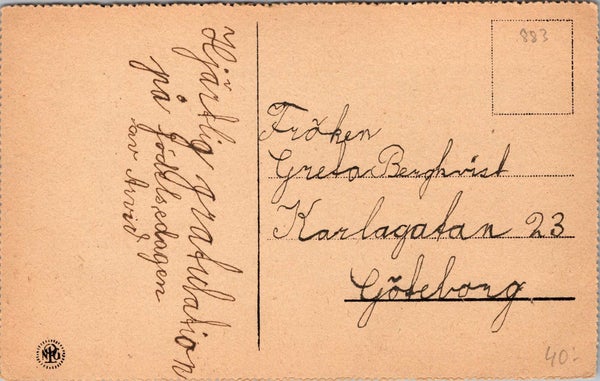 Hjärtlig gratulation
på födelsedagen
av Arvid
883
Fröken
Greta Berghvist
Karlagatan 23
Göteborg
40:-